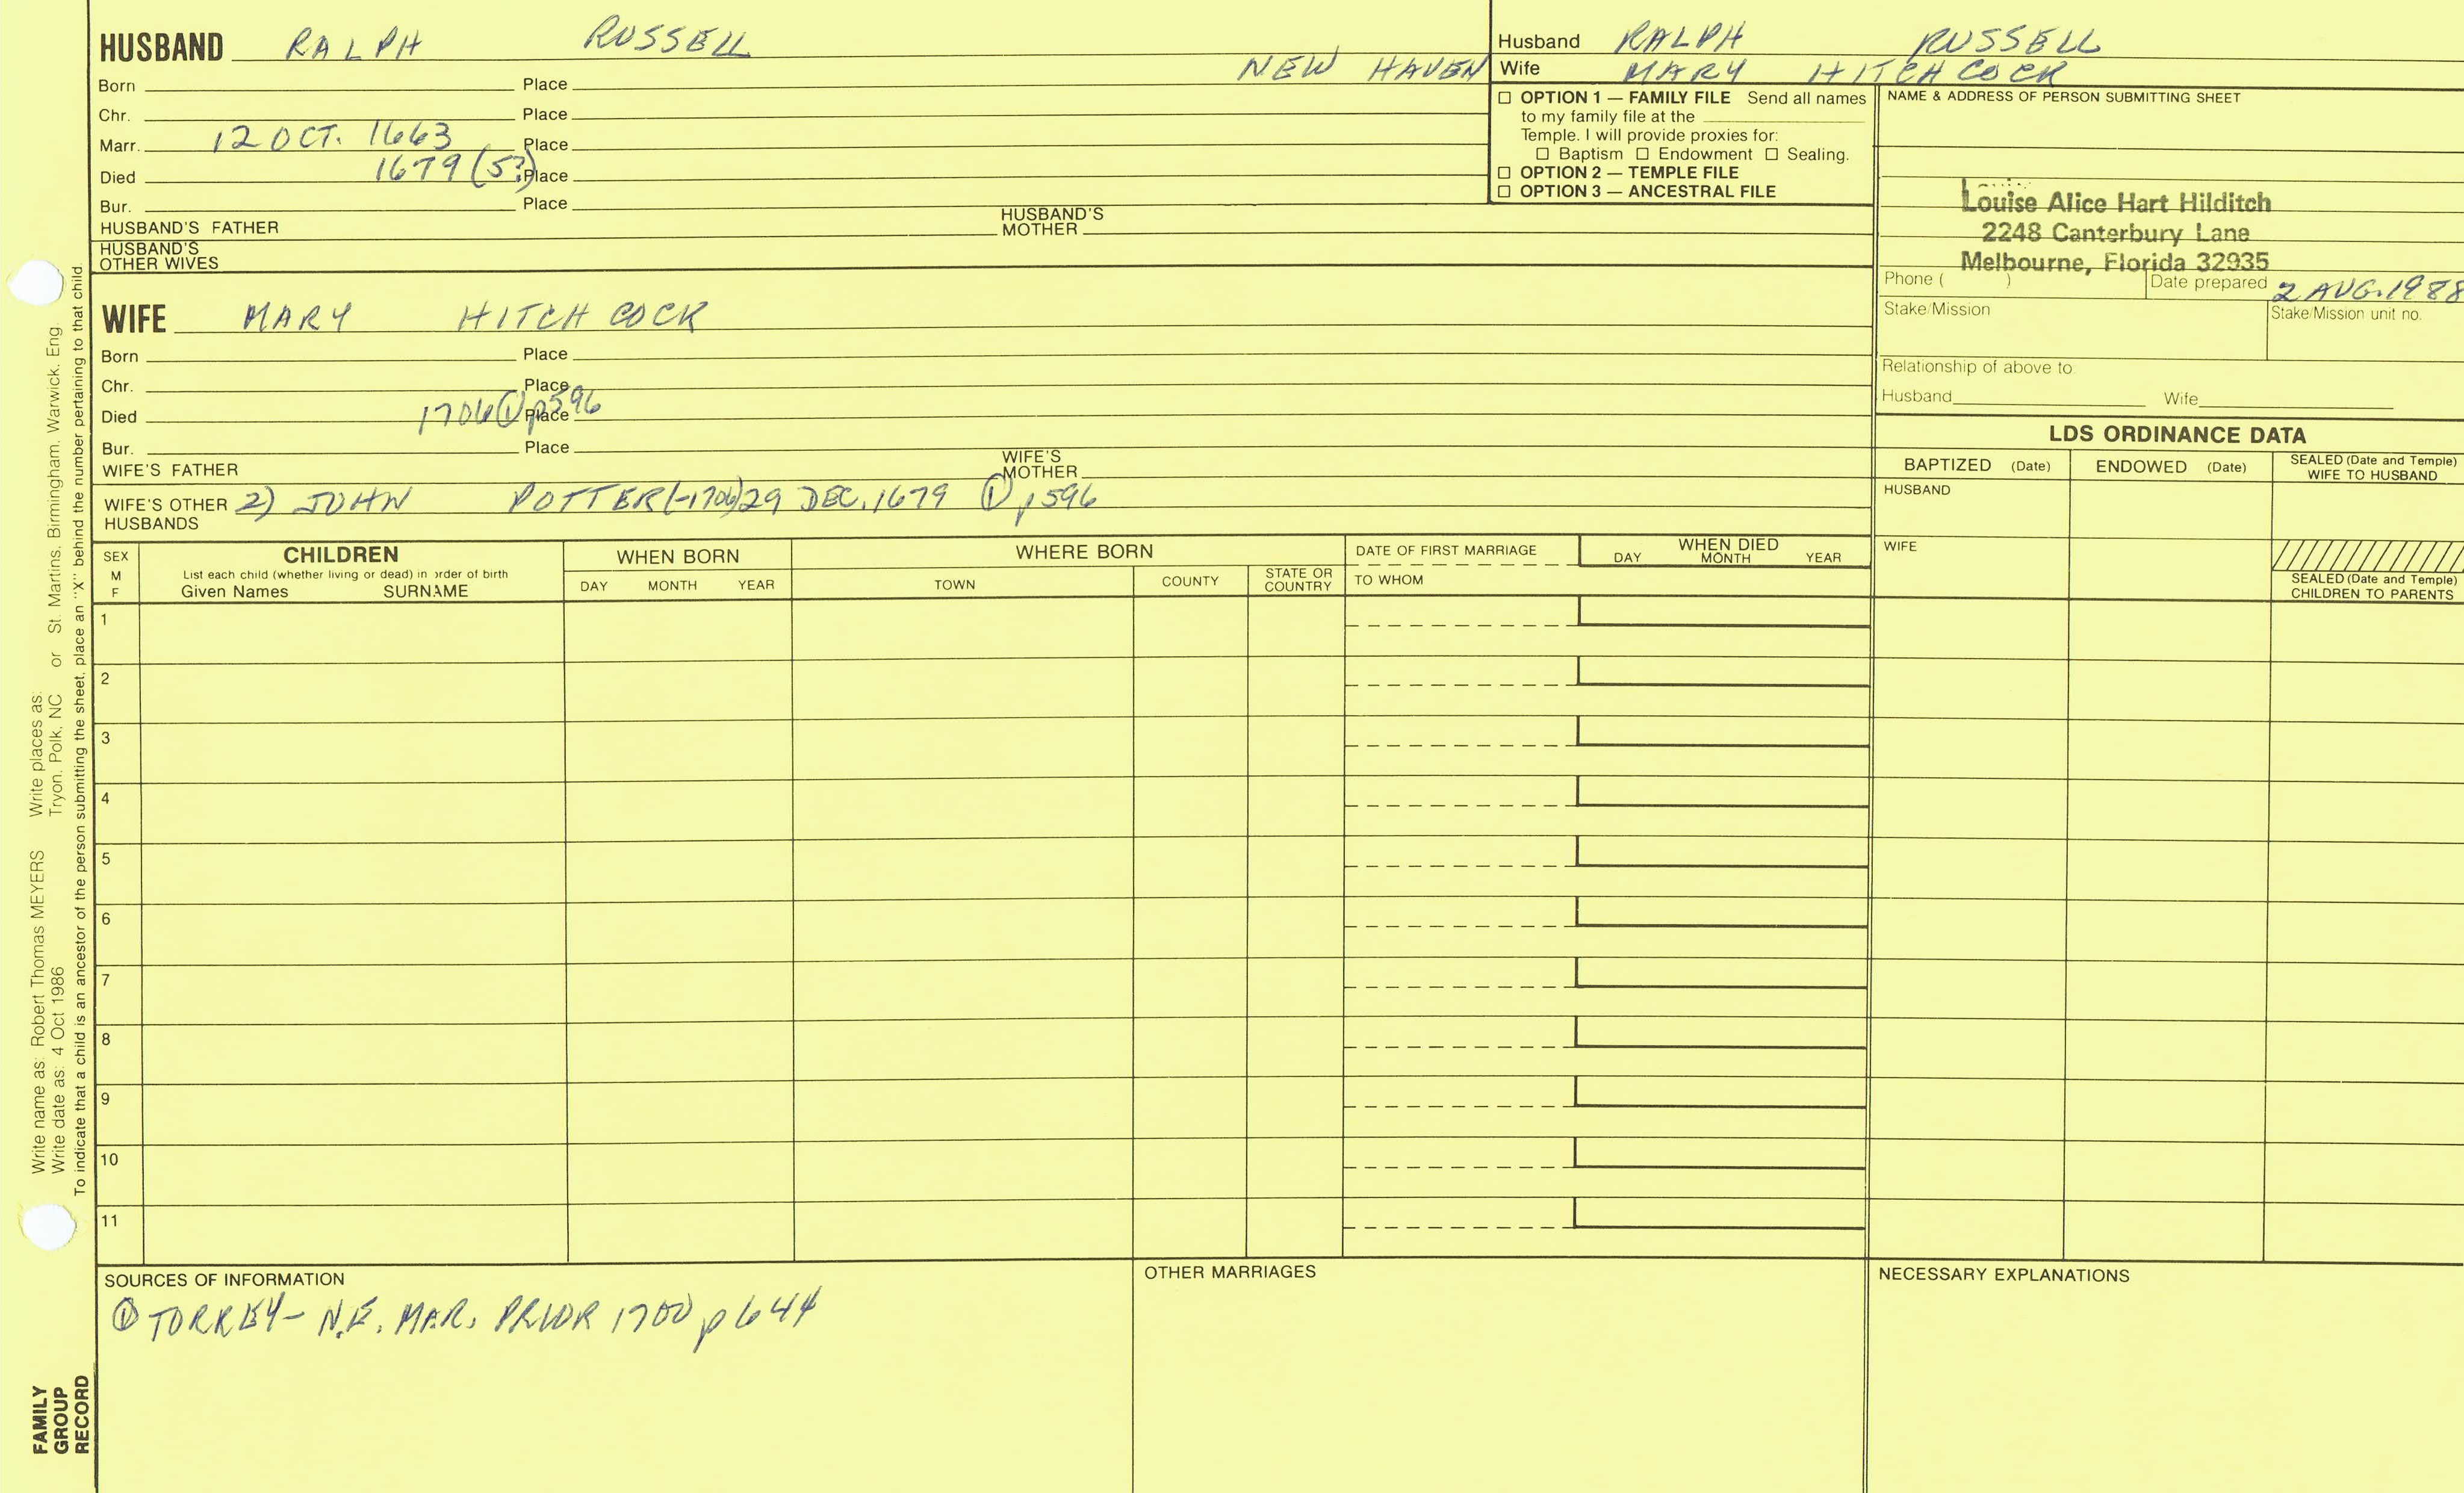 HUSBAND RALPH RUSSELL
NEW HAVEN
Born Place
Chr. Place
Marr. 12 OCT. 1663 Place
Died 1679 (5?) Place
Bur. Place
HUSBAND'S FATHER HUSBAND'S MOTHER
HUSBAND'S OTHER WIVES
Husband RALPH RUSSELL
Wife MARY HITCHCOCK
☐ OPTION 1 — FAMILY FILE Send all names
to my family file at the
Temple. I will provide proxies for:
☐ Baptism ☐ Endowment ☐ Sealing.
☐ OPTION 2 — TEMPLE FILE
☐ OPTION 3 — ANCESTRAL FILE
NAME & ADDRESS OF PERSON SUBMITTING SHEET
Louise Alice Hart Hilditch
2248 Canterbury Lane
Melbourne, Florida 32935
Phone ( ) Date prepared 2 AUG. 1988
Stake/Mission Stake/Mission unit no.
Relationship of above to:
Husband Wife
WIFE MARY HITCHCOCK
Born Place
Chr. Place
Died 1706 ① p596 Place
Bur. Place
WIFE'S FATHER WIFE'S MOTHER
WIFE'S OTHER HUSBANDS 2) JOHN POTTER (-1706) 29 DEC. 1679 ① p596
LDS ORDINANCE DATA
BAPTIZED (Date) ENDOWED (Date) SEALED (Date and Temple) WIFE TO HUSBAND
HUSBAND
WIFE
SEALED (Date and Temple) CHILDREN TO PARENTS
SEX M F
CHILDREN
List each child (whether living or dead) in order of birth
Given Names SURNAME
WHEN BORN
DAY MONTH YEAR
WHERE BORN
TOWN COUNTY STATE OR COUNTRY
DATE OF FIRST MARRIAGE
TO WHOM
WHEN DIED
DAY MONTH YEAR
1
2
3
4
5
6
7
8
9
10
11
SOURCES OF INFORMATION
① TORREY - N.E. MAR. PRIOR 1700 p 644
OTHER MARRIAGES
NECESSARY EXPLANATIONS
Write name as: Robert Thomas MEYERS Write places as:
Write date as: 4 Oct 1986 Tryon, Polk, NC or St. Martins, Birmingham, Warwick, Eng.
To indicate that a child is an ancestor of the person submitting the sheet, place an "X" behind the number pertaining to that child.
FAMILY
GROUP
RECORD